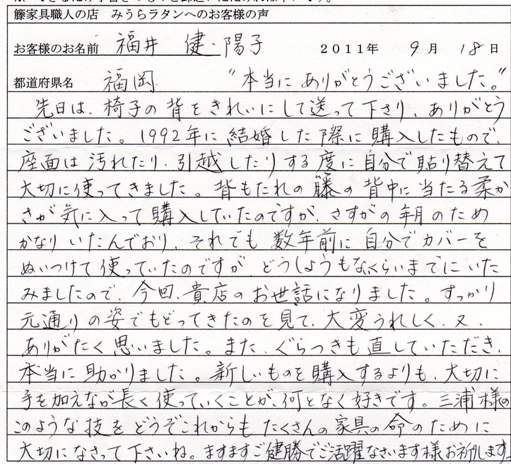 籐家具職人の店　みうらラタンへのお客様の声
お客様のお名前　福井　健・陽子　　2011年　9月　18日
都道府県名　福岡　　“本当にありがとうございました。”
先日は、椅子の背をきれいにして送って下さり、ありがとう
ございました。1992年に結婚した際に購入したもので、
座面は汚れたり、引越したりする度に自分で貼り替えて
大切に使ってきました。背もたれの籐の背中に当たる柔か
さが気に入って購入していたのですが、さすがの年月のため
かなりいたんでおり、それでも数年前に自分でカバーを
ぬいつけて使っていたのですが、どうしようもないくらいまでにいた
みましたので、今回、貴店のお世話になりました。すっかり
元通りの姿でもどってきたのを見て、大変うれしく、又、
ありがたく思いました。また、ぐらつきも直していただき、
本当に助かりました。新しいものを購入するよりも、大切に
手を加えながら長く使っていくことが、何となく好きです。三浦様の
このような技をどうぞこれからもたくさんの家具の命のために
大切になさって下さいね。ますますご健勝でご活躍なさいます様お祈りします。